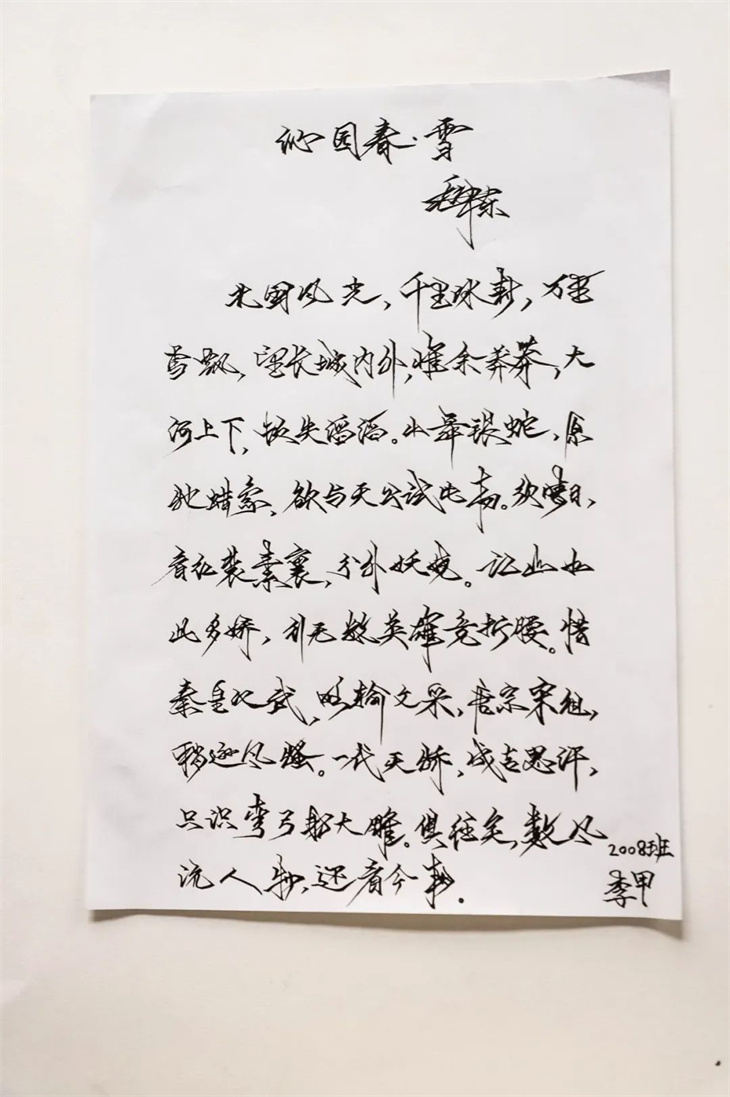 沁园春·雪
毛泽东
北国风光，千里冰封，万里
雪飘，望长城内外，惟余莽莽，大
河上下，顿失滔滔。山舞银蛇，原
驰蜡象，欲与天公试比高。须晴日，
看红装素裹，分外妖娆。江山如
此多娇，引无数英雄竞折腰。惜
秦皇汉武，略输文采，唐宗宋祖，
稍逊风骚。一代天骄，成吉思汗，
只识弯弓射大雕。俱往矣，数风
流人物，还看今朝。
2008班
李甲